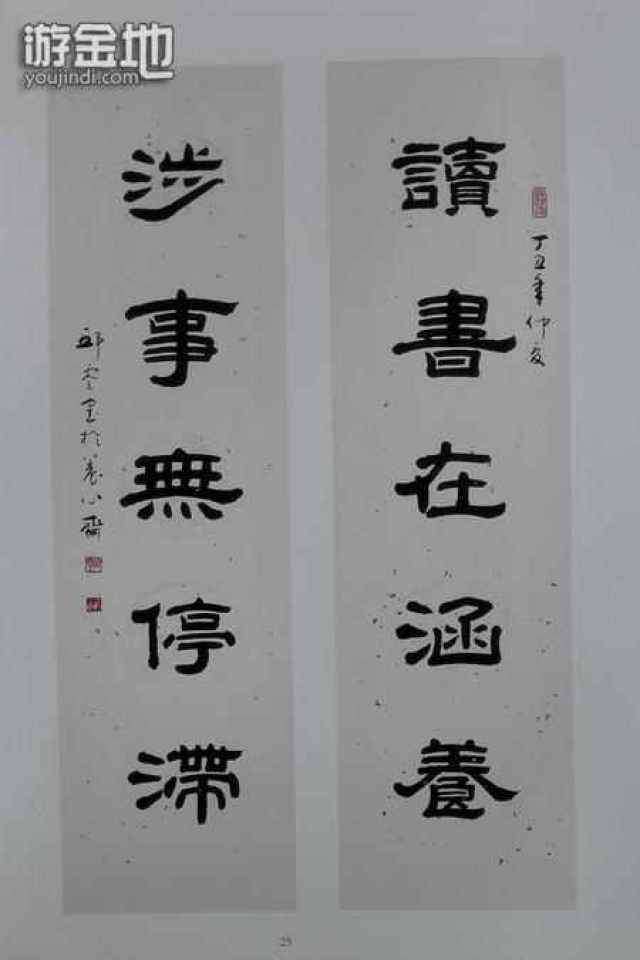 游金地
youjindi.com
讀書在涵養
丁丑年仲夏
涉事無停滯
邱零墨於養心齋
25